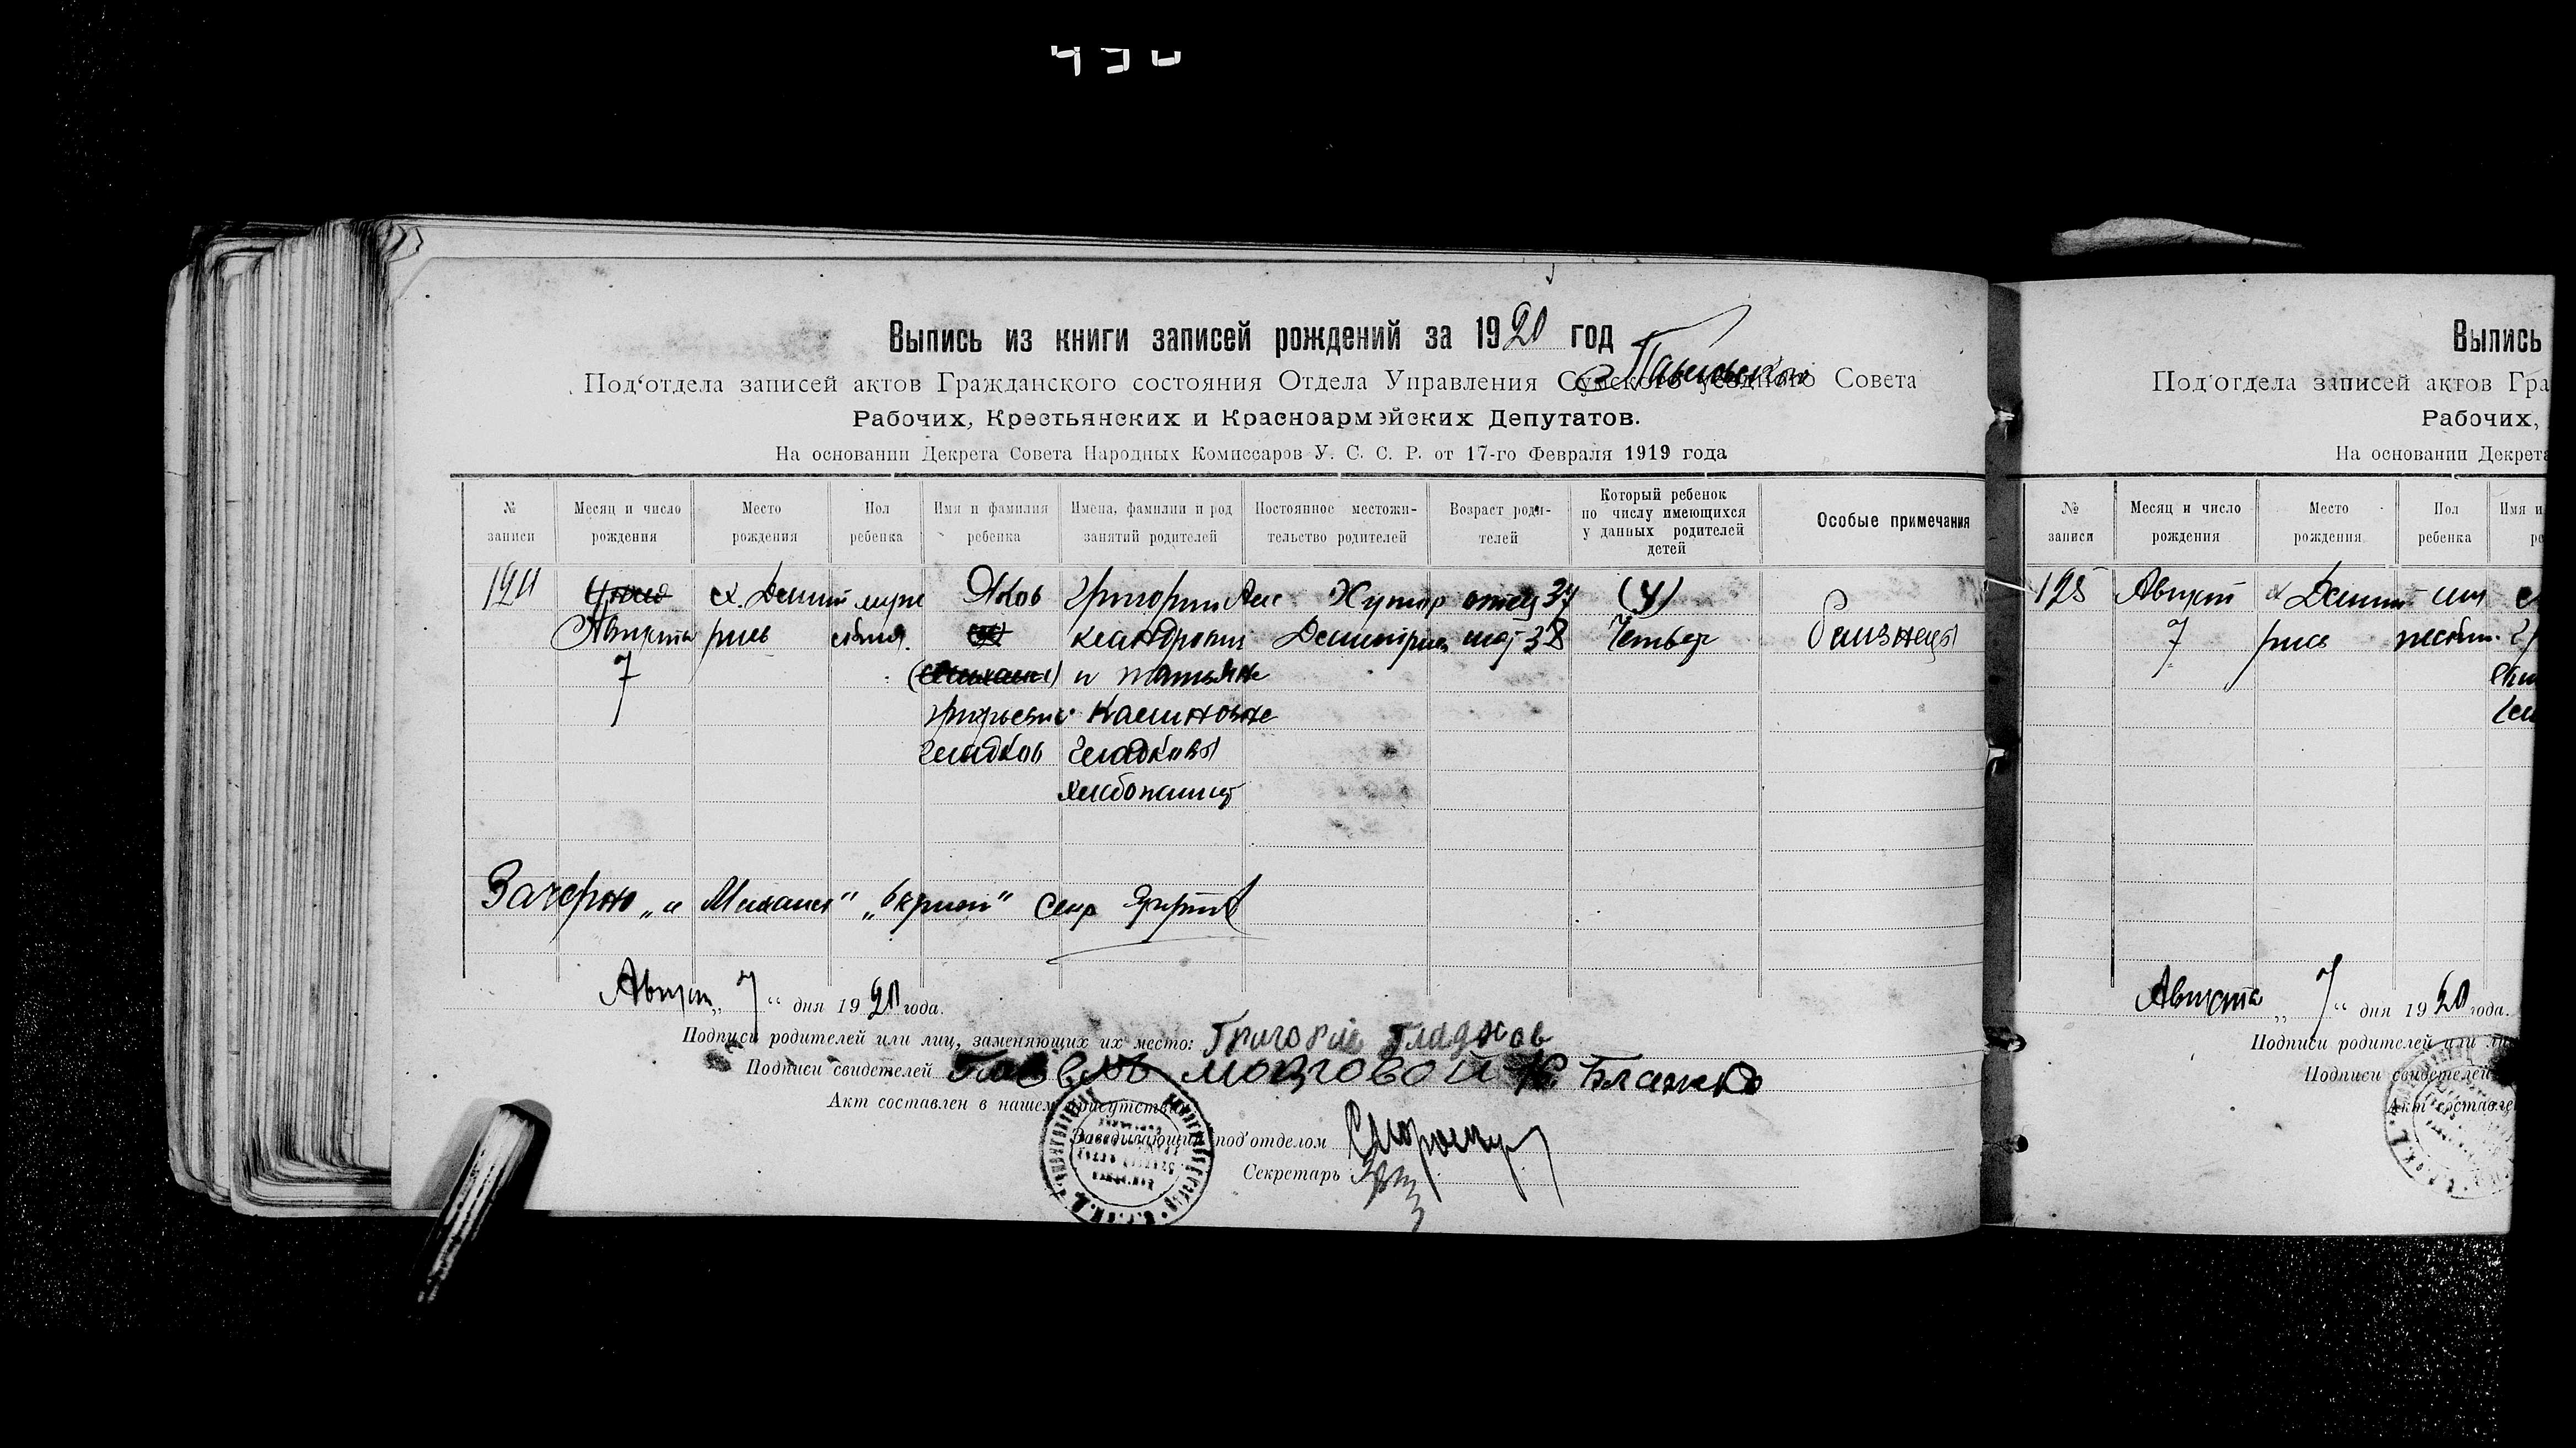 Выпись из книги записей рождений за 1920 год
Под‘отдела записей актов Гражданского состояния Отдела Управления Сумского уездного Совета
Рабочих, Крестьянских и Красноармейских Депутатов.
На основании Декрета Совета Народных Комиссаров У. С. С. Р. от 17-го Февраля 1919 года
№ записи
Месяц и число рождения
Место рождения
Пол ребенка
Имя и фамилия ребенка
Имена, фамилии и род занятий родителей
Постоянное местожи-тельство родителей
Возраст роди-телей
Который ребенок по числу имеющихся у данных родителей детей
Особые примечания
124
Августа
7
х. Дмит
рия
Яков
Гладков
Григорий Алек
сандрович
и татьяна
Гладковы
хлебопашцы
Хутор
Дмитрия
отец 37
мат 38
(4)
Четвер
близнецы
Зачеркн „и Михаил“ Секр
Август „7“ дня 1920 года.
Подписи родителей или лиц, заменяющих их место: Григорий Гладков
Подписи свидетелей Павелъ мозговой
Акт составлен в нашем присутствии
Заведывающий под‘отделом
Секретарь
Выпись
Под‘отдела записей актов Гра
Рабочих,
На основании Декрета
№ записи
Месяц и число рождения
Место рождения
Пол ребенка
Имя и
125
Август
7
х Дмит
рия
Августа „7“ дня 1920 года.
Подписи родителей или ли
Подписи свидетелей
Акт составле